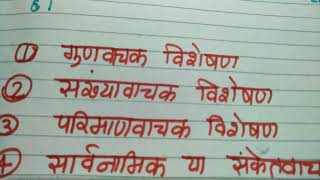 ① गुणवाचक विशेषण
② संख्यावाचक विशेषण
③ परिमाणवाचक विशेषण
④ सार्वनामिक या संकेतवाच